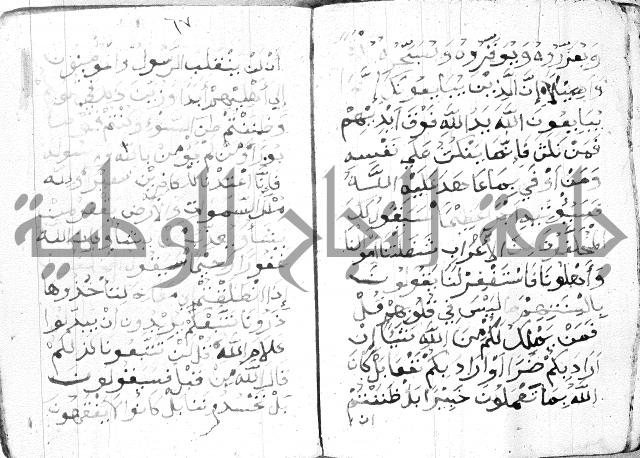 وتعزروه وتوقروه وتسبحوه
وأصيلا إن الذين يبايعونك إنما
يبايعون الله يد الله فوق أيديهم
فمن نكث فإنما ينكث على نفسه
ومن أوفى بما عاهد عليه الله
فسيؤتيه عظيما سيقول لك
المخلفون من الأعراب شغلتنا أموالنا
وأهلونا فاستغفر لنا يقولون
بألسنتهم ما ليس في قلوبهم قل
فمن يملك لكم من الله شيئا إن
أراد بكم ضرا أو أراد بكم نفعا بل كان
الله بما تعملون خبيرا بل ظننتم
ان
٦٧
أن لن ينقلب الرسول والمؤمنون
إلى أهليهم أبدا وزين ذلك في
وظننتم ظن السوء وكنتم قوما
بورا ومن لم يؤمن بالله ورسوله
فإنا أعتدنا للكافرين سعيرا ولله
ملك السموات والأرض يغفر لمن
يشاء ويعذب من يشاء وكان الله
غفورا رحيما سيقول
إذا انطلقتم إلى مغانم لتأخذوها
ذرونا نتبعكم يريدون أن يبدلوا
كلام الله قل لن تتبعونا كذلكم
قال الله من قبل فسيقولون
بل تحسدوننا بل كانوا لا يفقهون
جامعة النجاح الوطنية